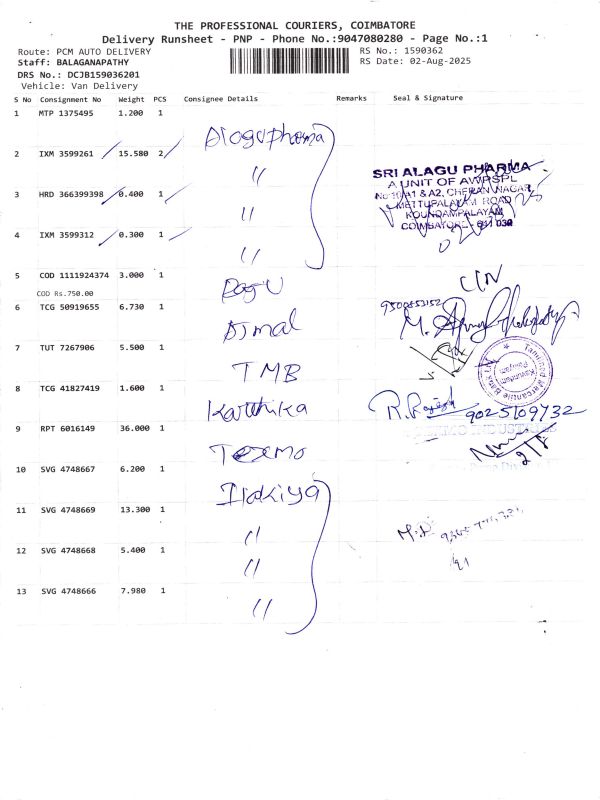 THE PROFESSIONAL COURIERS, COIMBATORE
Delivery Runsheet - PNP - Phone No.:9047080280 - Page No.:1
Route: PCM AUTO DELIVERY
RS No.: 1590362
Staff: BALAGANAPATHY
RS Date: 02-Aug-2025
DRS No.: DCJB159036201
Vehicle: Van Delivery
S No Consignment No Weight PCS Consignee Details Remarks Seal & Signature
1 MTP 1375495 1.200 1 Alagupharma
2 IXM 3599261 15.580 2 "
3 HRD 366399398 0.400 1 "
4 IXM 3599312 0.300 1 "
SRI ALAGU PHARMA
A UNIT OF AWPSPL
No 10/A1 & A2, CHERAN NAGAR,
METTUPALAYAM ROAD
KOUNDAMPALAYAM
COIMBATORE - 641 030
5 COD 1111924374 3.000 1
COD Rs.750.00
6 TCG 50919655 6.730 1 Ajmal
9500853152
7 TUT 7267906 5.500 1 TMB
Tamilnad Mercantile Bank Ltd
8 TCG 41827419 1.600 1 Karthika
R. Rajesh 9025109732
9 RPT 6016149 36.000 1 Texmo
2/8
10 SVG 4748667 6.200 1 Ilakiya
11 SVG 4748669 13.300 1 "
12 SVG 4748668 5.400 1 "
13 SVG 4748666 7.980 1 "